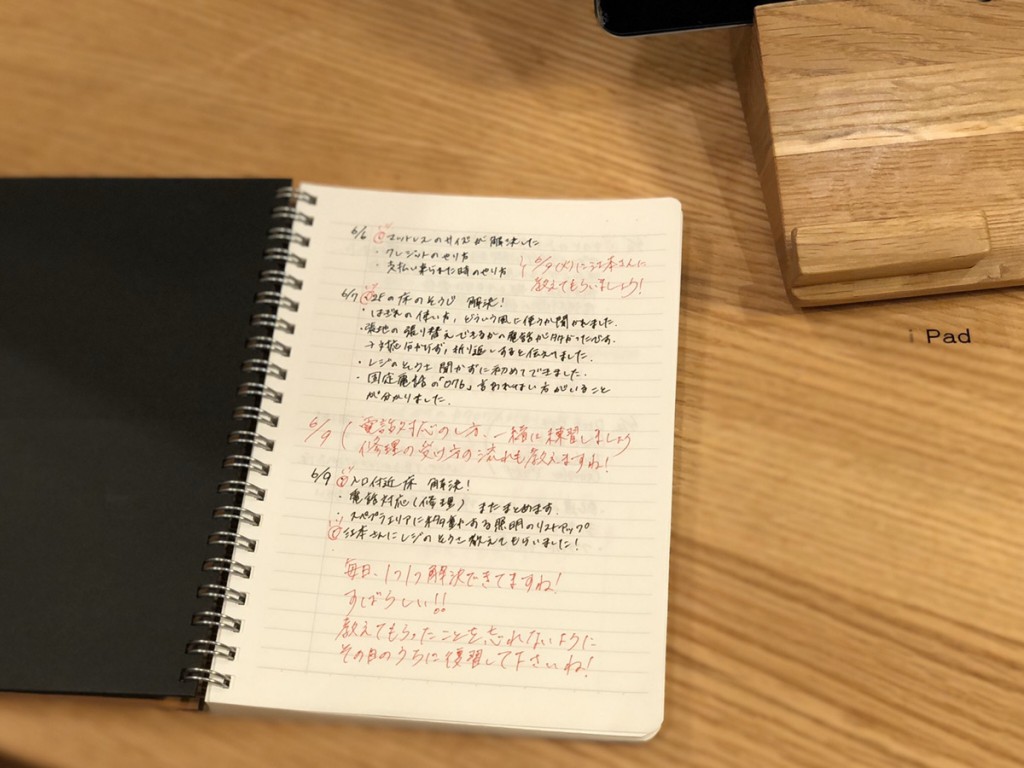 6/6 マットレスのサイズが 解決した
・クレジットのやり方
・支払い来られた時のやり方
6/9(火)に江本さんに
教えてもらいましょう!
6/7 2Fの床のそうじ 解決!
の使い方, どういう風に使うか聞かれました.
張地の張り替えできるかの電話が
折り返しすると伝えてました.
・レジの 聞かずに初めてできました.
・固定電話の「076」言わなければいい方がいること
が分かりました.
6/9 ( 電話対応のし方、一緒に練習しましょう
修理の受け方の流れも教えますね!
6/9 入口付近 床 解決!
・電話対応(修理) またまとめます.
エリアに ある照明のリストアップ
江本さんにレジの 教えてもらいました!
毎日、1つ1つ解決できてますね!
すばらしい!!
教えてもらったことを忘れないように
その日のうちに復習して下さいね!
iPad